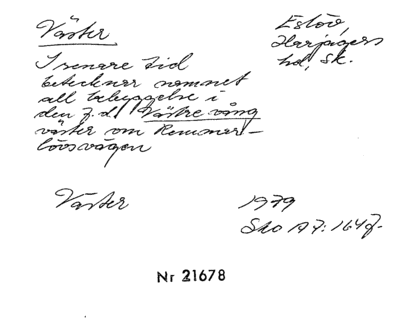 Väster
Eslöv,
Harjagers
hd, Sk.
I senare tid
betecknar namnet
all bebyggelse i
den f.d. Västre vång
väster om Remmar-
lövsvägen
Väster
1979
Sko A 7: 164 f.
Nr 21678